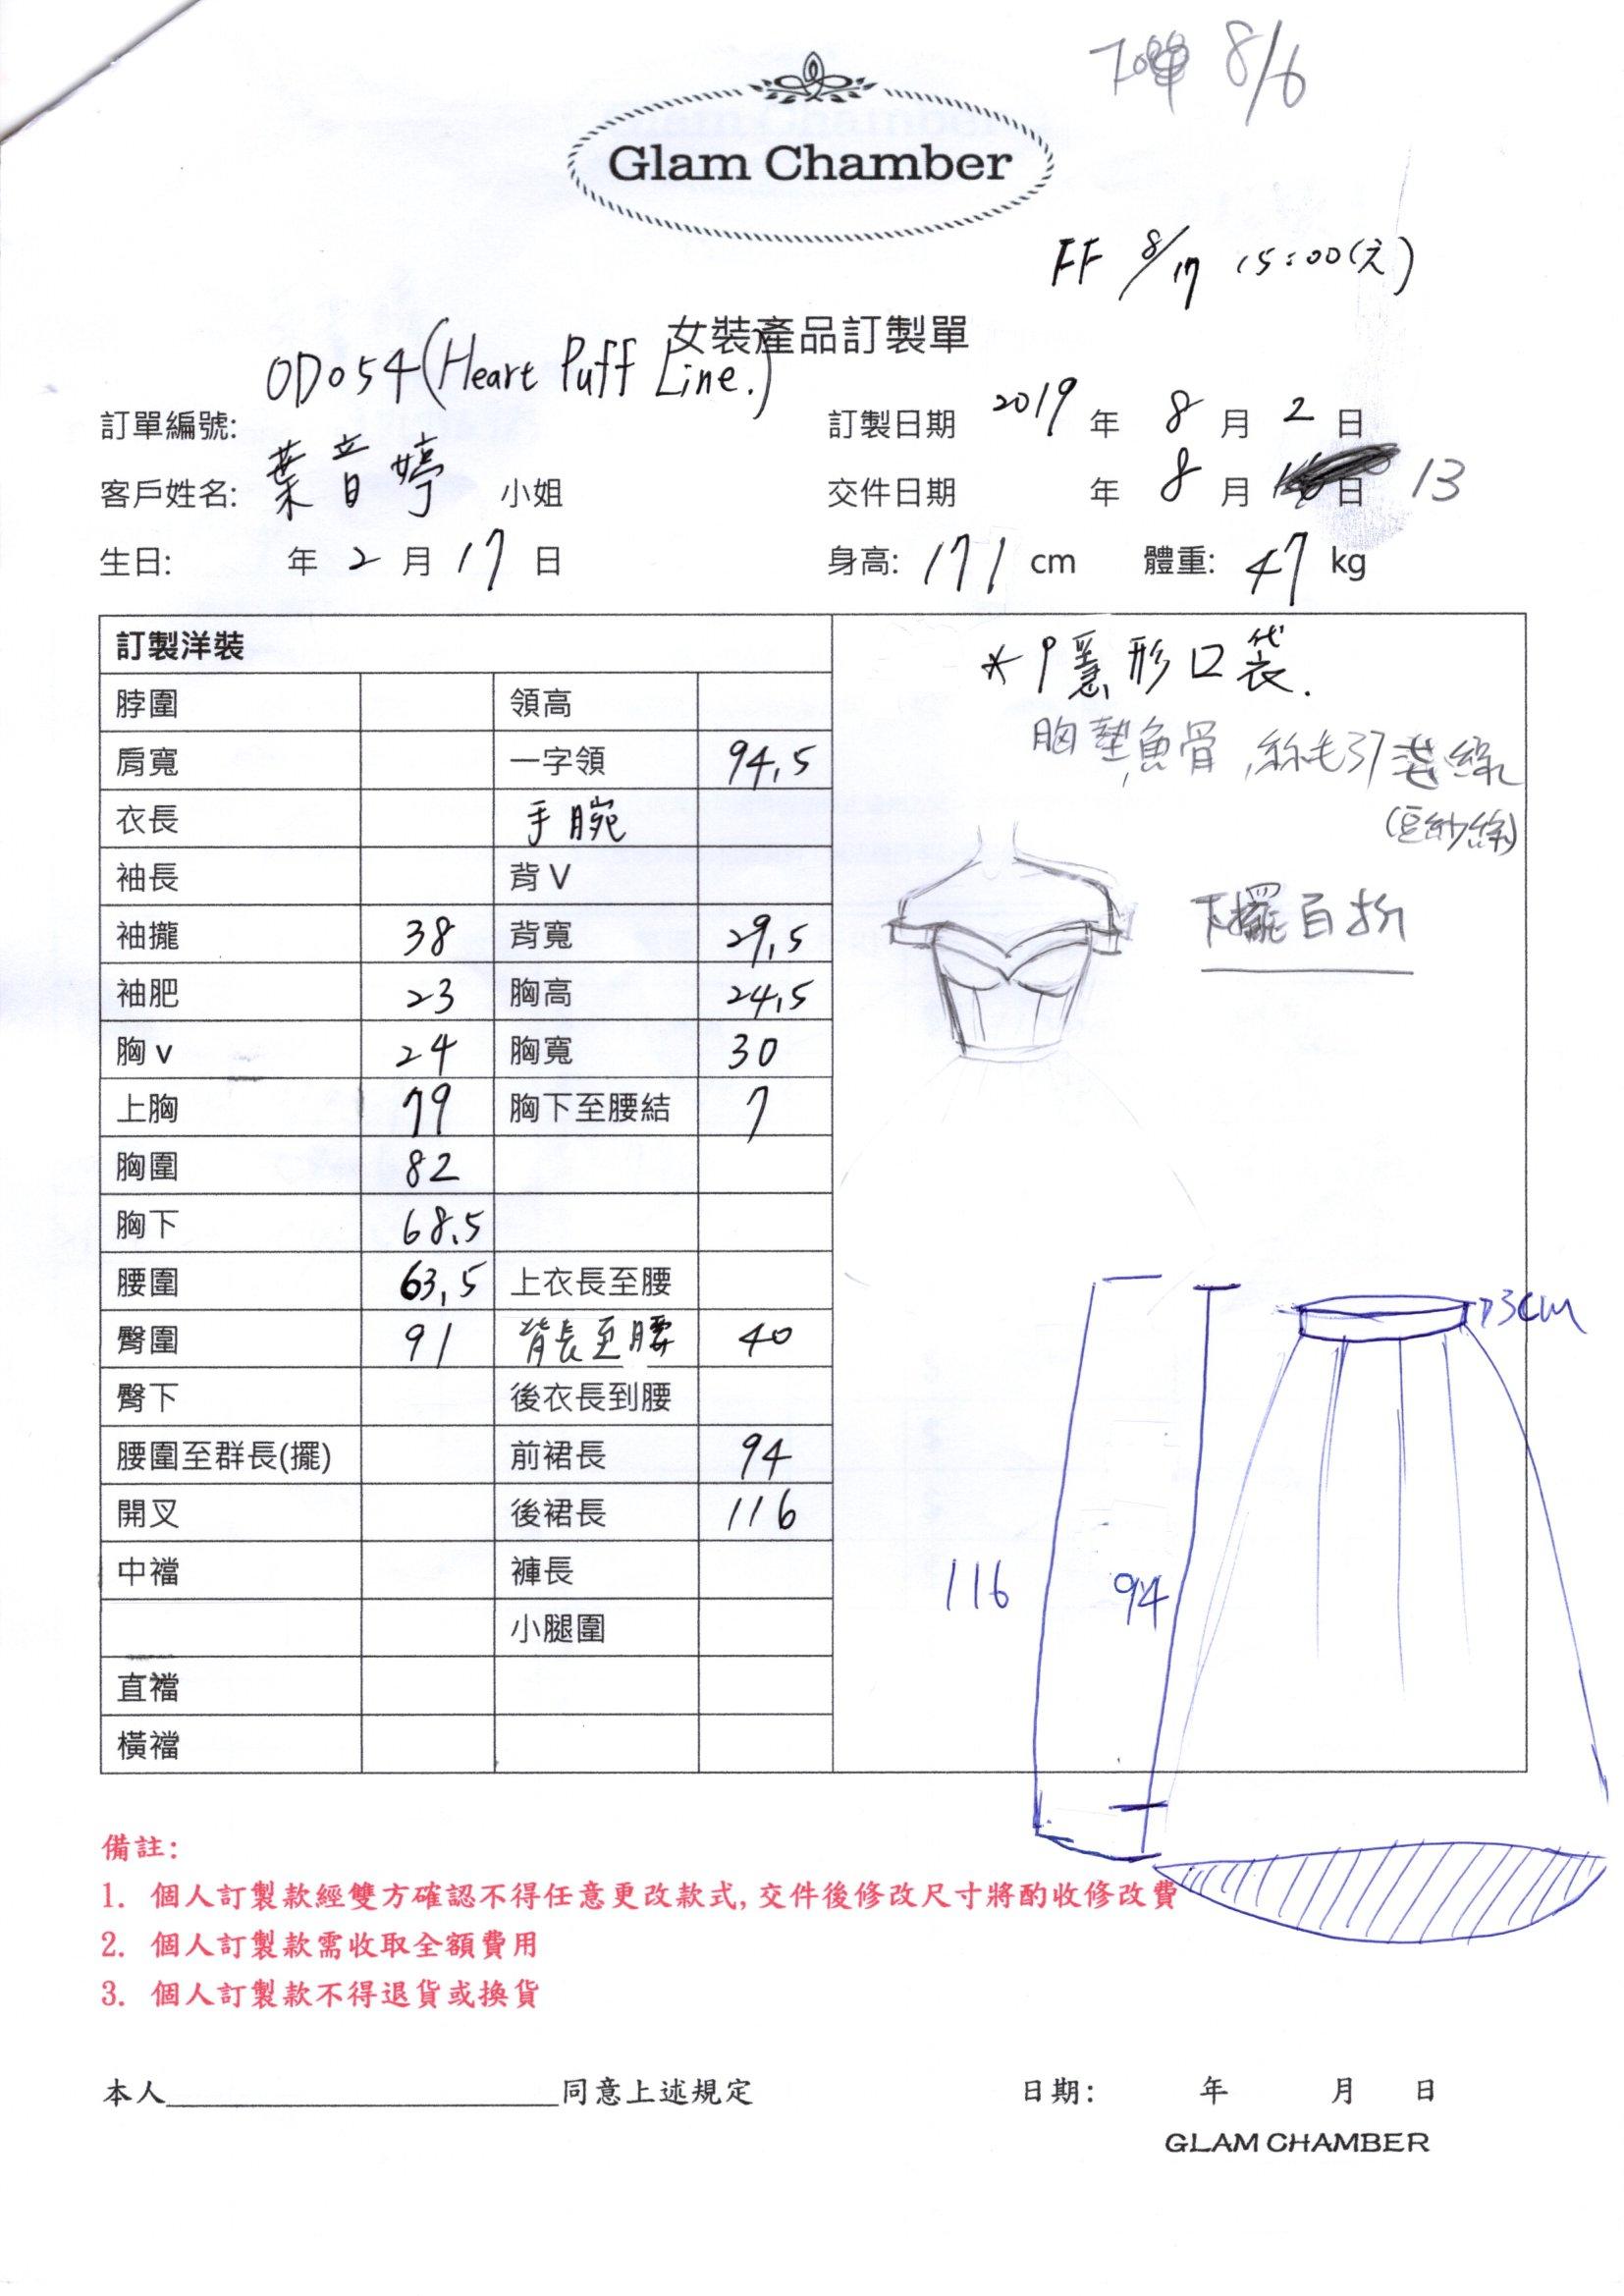 下單 8/6
Glam Chamber
FF 8/17 15:00(元)
女裝產品訂製單
訂單編號: OD054(Heart Puff Line.)
訂製日期 2019 年 8 月 2 日
客戶姓名: 葉音婷 小姐
交件日期 年 8 月 日 13
生日: 年 2 月 17 日
身高: 171 cm 體重: 47 kg
訂製洋裝
脖圍 領高
肩寬 一字領 94.5
衣長 手腕
袖長 背 V
袖攏 38 背寬 29.5
袖肥 23 胸高 24.5
胸 v 24 胸寬 30
上胸 79 胸下至腰結 7
胸圍 82
胸下 68.5
腰圍 63.5 上衣長至腰
臀圍 91 背長至腰 40
臀下 後衣長到腰
腰圍至群長(擺) 前裙長 94
開叉 後裙長 116
中襠 褲長
小腿圍
直襠
橫襠
*隱形口袋.
胸墊,魚骨,絲毛37 綠
下擺百折
3cm
116 94
備註:
1. 個人訂製款經雙方確認不得任意更改款式, 交件後修改尺寸將酌收修改費
2. 個人訂製款需收取全額費用
3. 個人訂製款不得退貨或換貨
本人 同意上述規定 日期: 年 月 日
GLAM CHAMBER